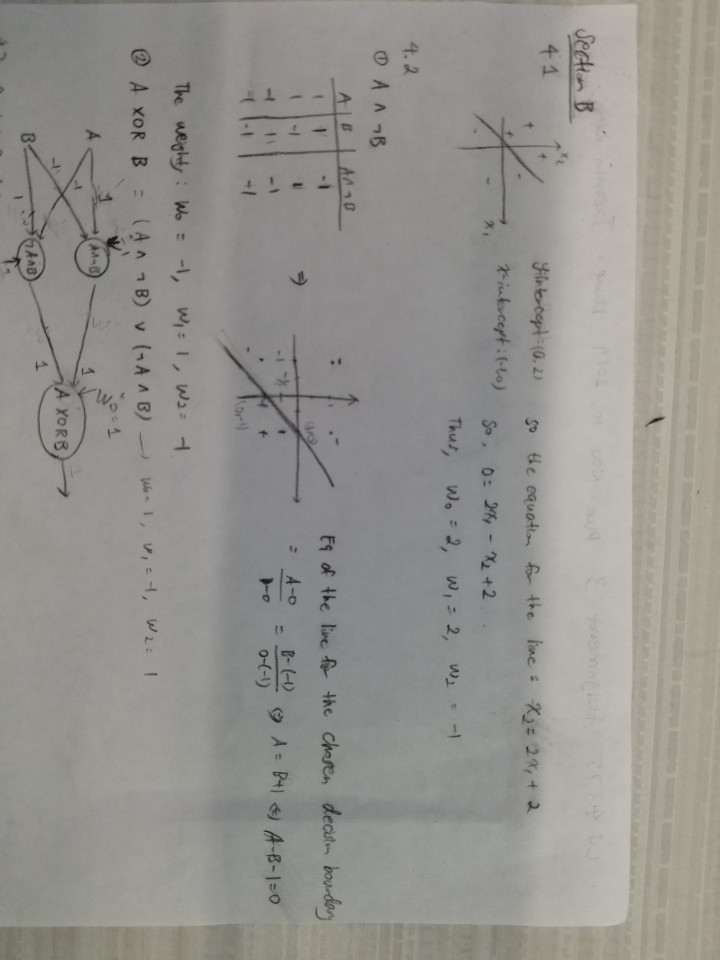 Section B
4.1
x₂
x₁
y-intercept=(0,2) so the equation for the line: x₂ = 2x₁ + 2
x-intercept:(-1,0) So, 0 = 2x₁ - x₂ + 2.
Thus, w₀ = 2, w₁ = 2, w₂ = -1
4.2
① A ∧ ¬B
A | B | A∧¬B
1 1 -1
1 -1 1
-1 1 -1
-1 -1 -1
⇒
Eq of the line for the chosen decision boundary
= A-0 / 1-0 = B-(-1) / 0-(-1) ⇔ A = B+1 ⇔ A-B-1=0
The weights: w₀ = -1, w₁ = 1, w₂ = -1
② A XOR B = (A ∧ ¬B) ∨ (¬A ∧ B) → w₀ = 1, w₁ = -1, w₂ = 1
A
1
A∧¬B
1
w₀=1
-1
-1
A XOR B
B
1
¬A∧B
1